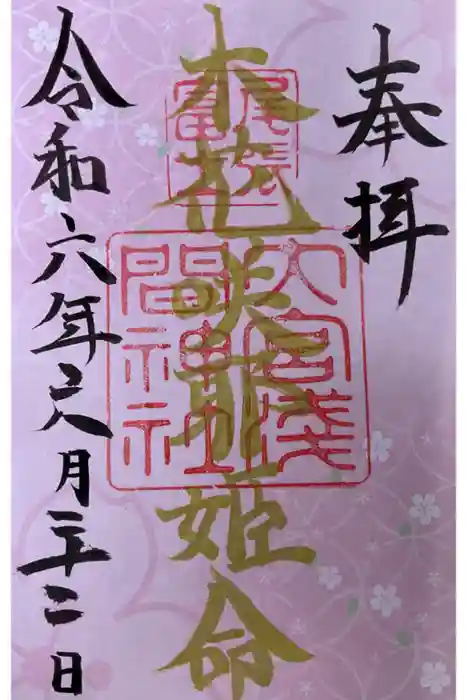 奉拝
尾張
富士
木花咲耶姫命
大宮浅
間神社
令和六年八月二十二日